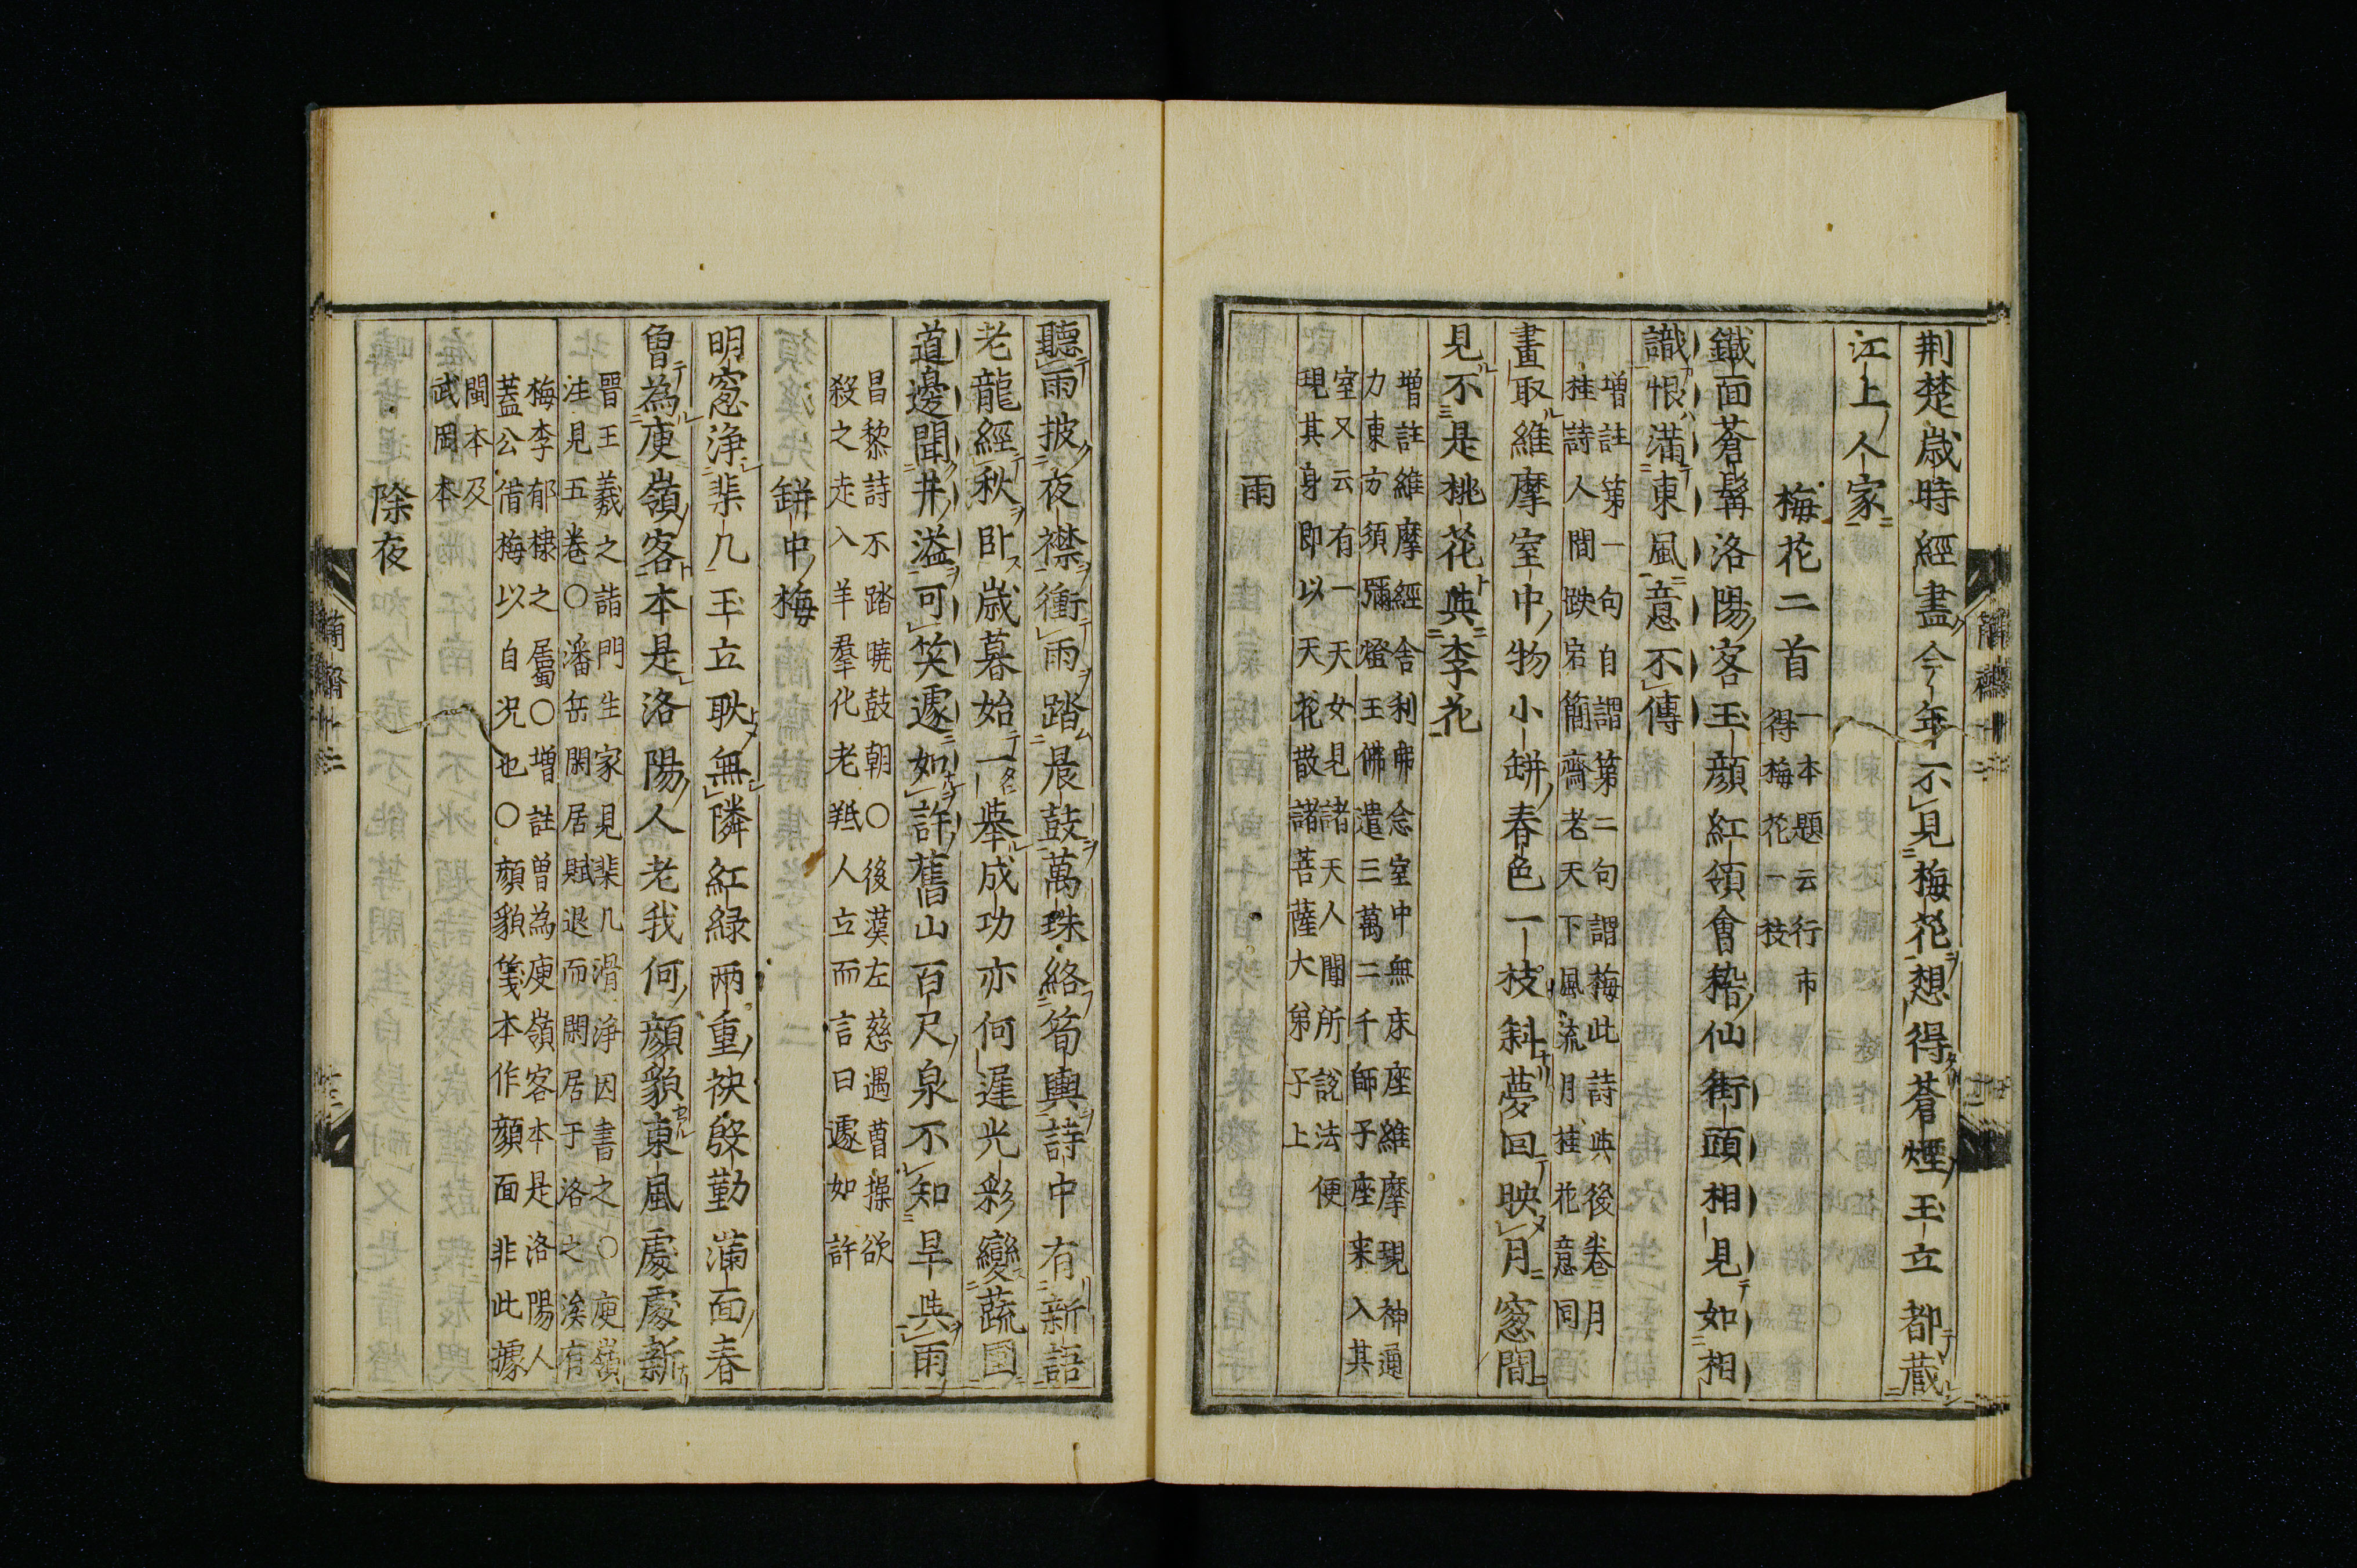 荆楚歲時經盡今年不見梅花想得蒼煙玉立都藏
江上人家
梅花二首
一本題云行市
得梅花一枝
鐵面蒼髯洛陽客玉顏紅領會稽仙街頭相見如相
識恨滿東風意不傳
增註第一句自謂第二句謂梅此詩與後巻月
桂詩人間跌宕簡齋老天下風流月桂花意同
畫取維摩室中物小缾春色一枝斜夢回映月窓間
見不是桃花與李花
增註維摩經舎利弗念室中無床座維摩現神通
力東方須彌燈王佛遣三萬二千師子座来入其
室又云有一天女見諸天人聞所説法便
現其身即以天花散諸菩薩大弟子上
雨
聽雨披夜襟衝雨踏晨鼓萬珠絡筍輿詩中有新語
老龍經秋卧歲暮始一舉成功亦何遲光彩變蔬圃
道邊聞井溢可笑遽如許舊山百尺泉不知旱與雨
昌黎詩不踏曉鼓朝〇後漢左慈遇曹操欲
殺之走入羊羣化老羝人立而言曰遽如許
缾中梅
明窓淨棐几玉立耿無隣紅緑兩重袂殷勤滿面春
魯為庾嶺客本是洛陽人老我何顏貌東風處處新
晋王羲之詣門生家見棐几滑淨因書之〇庾嶺
注見五巻〇潘岳閑居賦退而閑居于洛之涘有
梅李郁棣之屬〇增註曽為庾嶺客本是洛陽人
蓋公借梅以自况也〇顏貌箋本作顏面非此據
閩本及
武岡本
除夜
簡齋十二